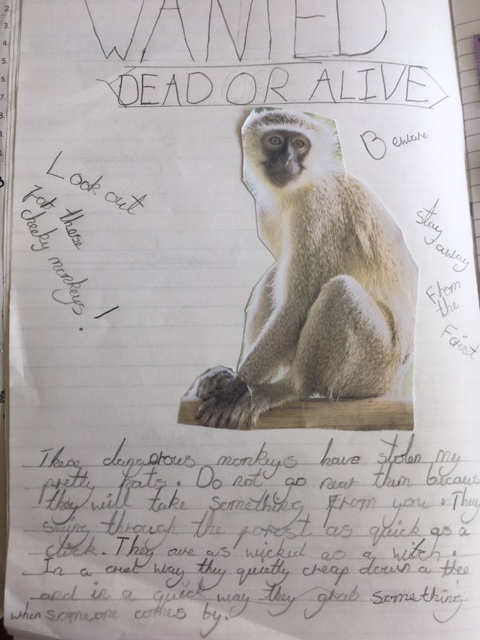 WANTED
DEAD OR ALIVE
Beware
Look out
for these
cheeky monkeys!
stay
away
from
the
Forist
These dangerous monkeys have stolen my
pretty hats. Do not go near them becaus
they will take something from you. They
swing through the forest as quick as a
clock. They are as wicked as a witch.
In a cruel way they quietly creap down a tree
and in a quick way they grab something
when someone comes by.